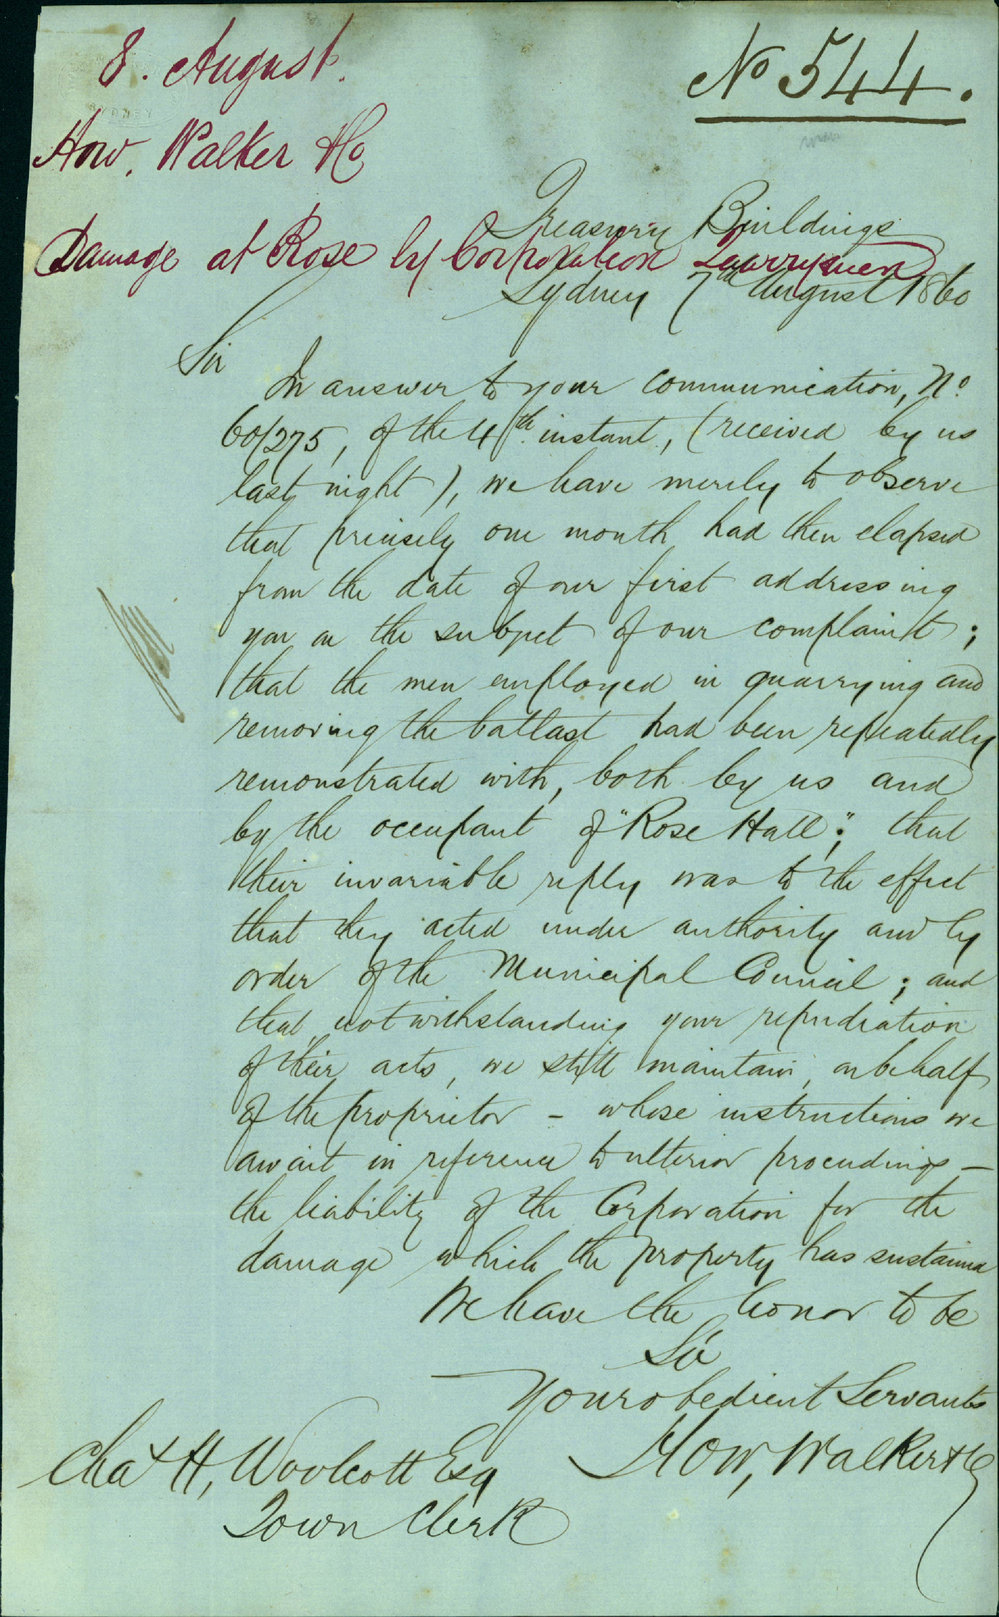 8. August.
No 544.
How, Walker & Co
Treasury Buildings
Damage at Rose by Corporation Quarrymen
Sydney 7th August 1860
Sir
In answer to your communication, No.
60/275, of the 4th instant, (received by us
last night), we have merely to observe
that precisely one month had then elapsed
from the date of our first addressing
you on the subject of our complaint;
that the men employed in quarrying and
removing the ballast had been repeatedly
remonstrated with, both by us and
by the occupant of "Rose Hall"; that
their invariable reply was to the effect
that they acted under authority and by
order of the Municipal Council; and
that notwithstanding your repudiation
of their acts, we still maintain, on behalf
of the proprietor – whose instructions we
await in reference to ulterior proceedings –
the liability of the Corporation for the
damage which the property has sustained
We have the honor to be
Sir
Your obedient Servants
How, Walker & Co
Chas H, Woolcott Esq
Town Clerk